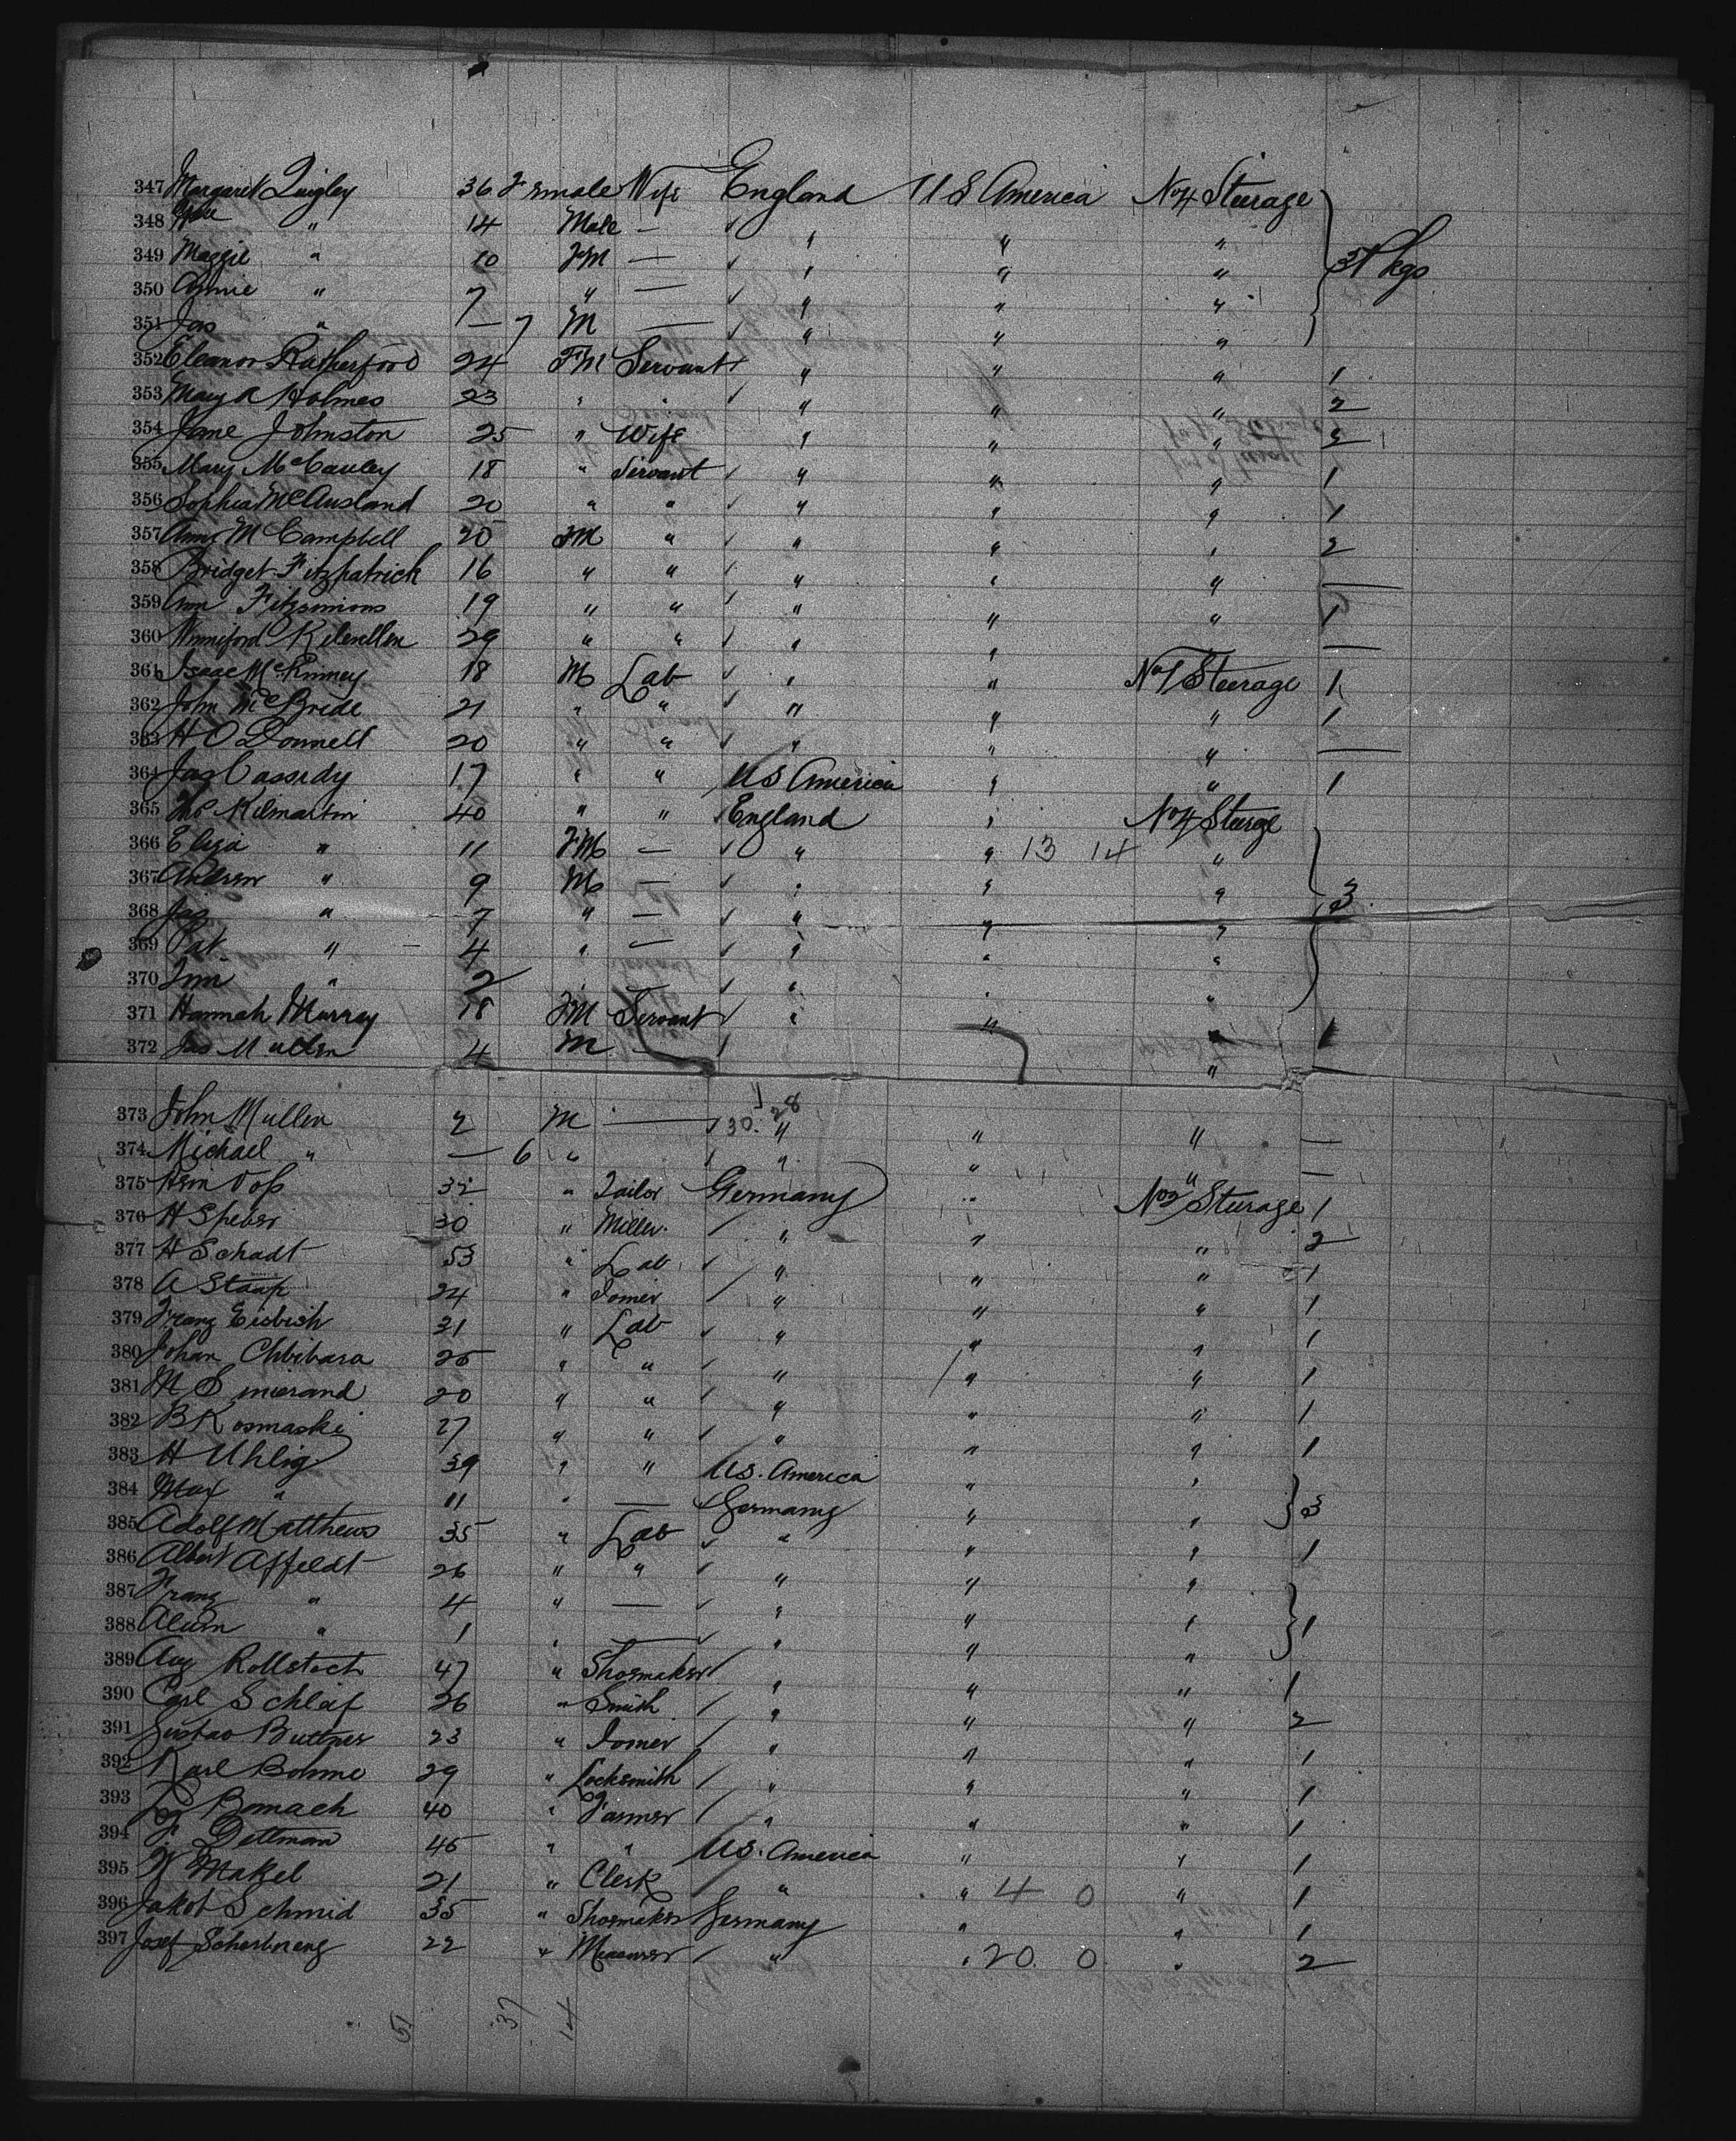 347 Margaret Quigley 36 Female Wife England U S America No 4 Steerage
348 " 14 Male — " " "
349 Maggie " 10 FM — " " " 3 Pkgs
350 Annie " 7 " — " " "
351 Jas " — 7 M — " " "
352 Eleanor Rutherford 24 FM Servant " " " 1
353 Mary A Holmes 23 " " " " 2
354 Jane Johnston 25 " Wife " " " 2
355 Mary McCauley 18 " Servant " " " 1
356 Sophia McAusland 20 " " " " " 1
357 Ann M Campbell 20 FM " " " " 2
358 Bridget Fitzpatrick 16 " " " " " —
359 Ann Fitzsimions 19 " " " " " 1
360 Winniford 29 " " " " " —
361 Isaac McKinney 18 M Lab " " No 1 Steerage 1
362 John McBride 21 " " " " " 1
363 H O Donnell 20 " " " " " —
364 Jas Cassidy 17 " " US America " " 1
365 Kilmartin 40 " " England " No 4 Steerge
366 Eliza " 11 FM — " " 13 14 "
367 Andrew " 9 M — " " " 3
368 Jas " 7 " — " " "
369 Pat " 4 " — " " "
370 " 2 " " " "
371 Hannah Murray 18 FM Servant " " " 1
372 Jas Mullen 4 M — "
373 John Mullen 2 M — 30. 28 " " " —
374 Michael " — 6 " " " " —
375 Voss 32 " Tailor Germany " No 2 Steerage 1
376 H Speber 30 " Miller " " " 2
377 H Schadt 53 " Lab " " " 1
378 A Staap 24 " Joiner " " " 1
379 Franz Eisbish 31 " Lab " " " 1
380 Johan Chbibara 25 " " " " " 1
381 M Smierand 20 " " " " " 1
382 B Kosmaski 27 " " " " " 1
383 H Uhlig 39 " " US. America " "
384 Max " 11 " — Germany " " 3
385 Adolf Matthews 35 " Lab " " " 1
386 Albert Affeldt 26 " " " " "
387 Franz " 4 " — " " " 1
388 " 1 " — " " "
389 Aug Rollstech 47 " Shoemaker " " " 1
390 Carl Schleif 26 " Smith " " " 2
391 Gustav Buttner 23 " Joiner " " " 1
392 Karl Bohme 29 " Locksmith " " " 1
393 Bomach 40 " Farmer " " " 1
394 F. Dettman 45 " " US. America " " 1
395 Makel 21 " Clerk " " 4 0 " 1
396 Jakob Schmid 35 " Shoemaker Germany " " 1
397 Josef 22 " " " 20. 0 " 2
51 37 14